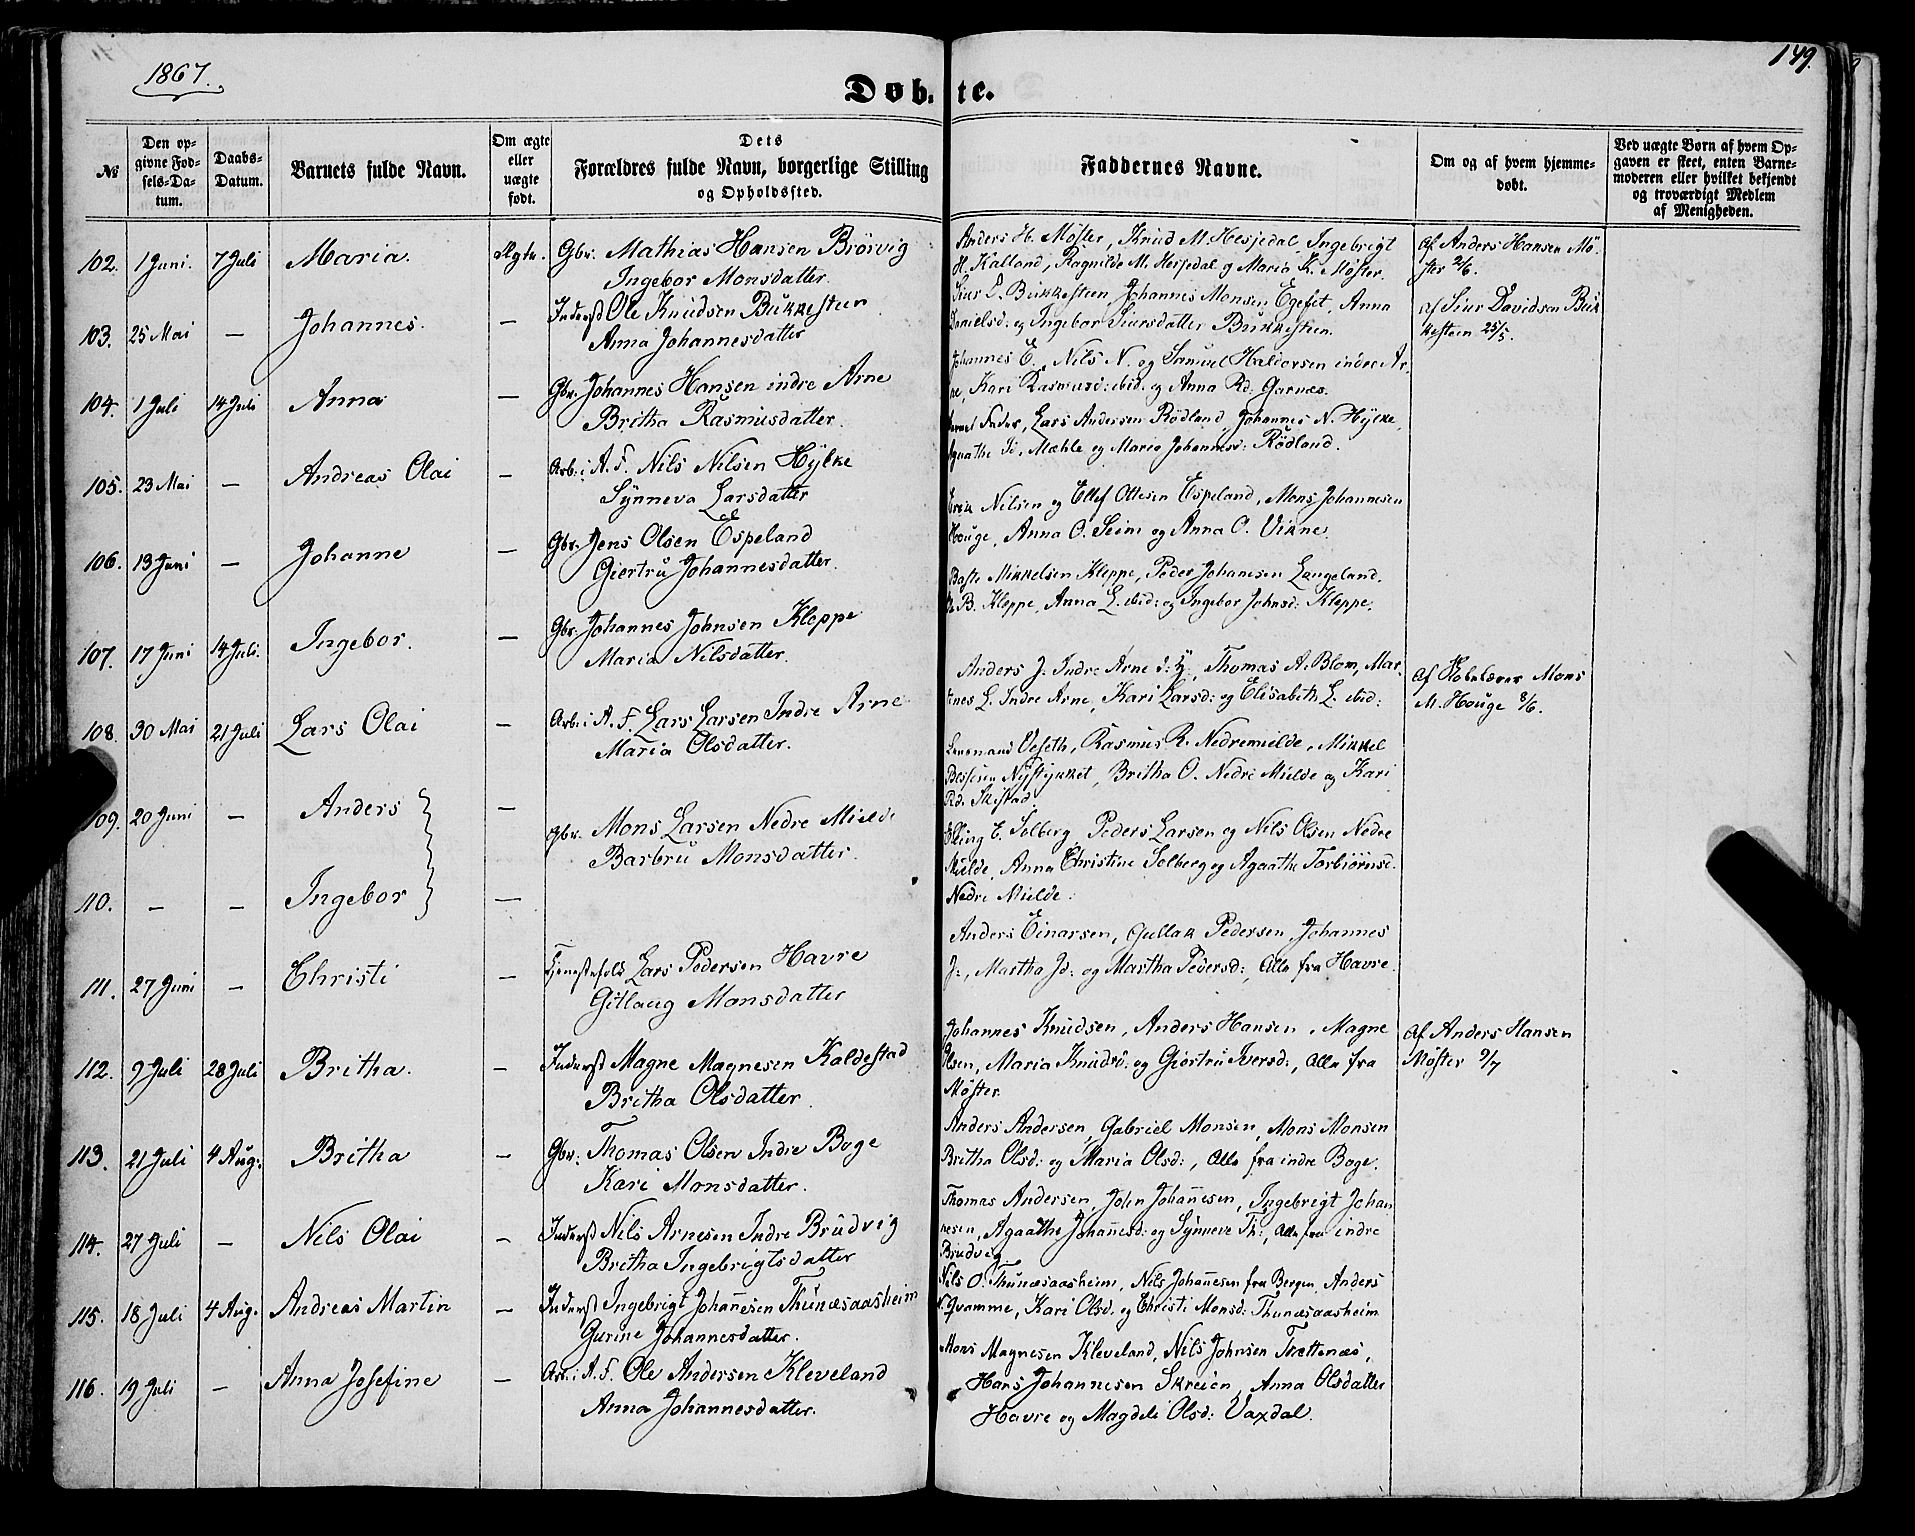 1867.
149.
Døbte.
№
Den opgivne Fødsels-Datum.
Daabs-Datum.
Barnets fulde Navn.
Om ægte eller uægte født.
Dets
Forældres fulde Navn, borgerlige Stilling
og Opholdssted.
Faddernes Navne.
Om og af hvem hjemmedøbt.
Ved uægte Børn af hvem Opgaven er skeet, enten Barnemoderen eller hvilket bekjendt og troværdigt Medlem af Menigheden.
102. 1 Juni. 7 Juli Maria. Ægte. Gbr. Mathias Hansen Brörvig
Ingebor Monsdatter.
Anders H. Møster, Knud M. Hesjedal, Ingebrigt
H. Kalland, Ragnilde M. Hesjedal og Maria K. Møster.
Af Anders Hansen Mö-
ster 2/6.
103. 25 Mai — Johannes. — Inderst Ole Knudsen Bukkesteen
Anna Johannesdatter
Siur D. Bukkesteen, Johannes Monsen Egeset, Anna
Danielsd. og Ingebor Siursdatter Bukkesteen.
af Siur Davidsen Buk
kesteen 25/5.
104. 1 Juli 14 Juli Anna — Gbr. Johannes Hansen indre Arne
Britha Rasmusdatter.
Johannes E., Nils N. og Samuel Haldorsen indre Ar
ne, Kari Rasmusd: ibid. og Anna Rd. Garnæs.
105. 23 Mai — Andreas Olai — Arb: i A. F. Nils Nilsen Hÿlke
Sÿnneva Larsdatter
Barnets Fader, Lars Andersen Rödland, Johannes N. Hÿlke,
Agaathe Mæhle og Maria Johannesd: Rödland.
106. 13 Juni — Johanne — Gbr. Jens Olsen Espeland
Giertru Johannesdatter.
Nilsen og Ellef Ottesen Espeland, Mons Johannesen
Houge, Anna O. Seim og Anna O. Vikne
107. 17 Juni 14 Juli. Ingebor. — Gbr. Johannes Johnsen Kleppe
Maria Nilsdatter.
Baste Mikkelsen Kleppe, Peder Johanesen Langeland.
B. Kleppe, Anna L. ibid: og Ingebor Johnsd: Kleppe.
108. 30 Mai 21 Juli Lars Olai — Arb: i A. F. Lars Larsen Indre Arne
Maria Olsdatter.
Anders J. Indre Arne d: Y:, Thomas A. Blom, Mar-
tines L. Indre Arne, Kari Larsd: og Elisabeth L. ibid:
af Skolelærer Mons
M. Houge 8/6.
109. 20 Juni — Anders — Gbr. Mons Larsen Nedre Mielde
Barbru Monsdatter.
Veseth, Rasmus R. Nedremielde, Mikkel
Nÿstykket, Britha O. Nedre Mielde og Kari
Rd. Skistad.
110. — — Ingebor —
Elling E. Solberg, Peder Larsen og Nils Olsen Nedre
Mielde, Anna Christine Solberg og Agaathe Torbiörnsd.
Nedre Mielde.
111. 27 Juni — Christi — Tjenestefolk Lars Pedersen Havre
Gitlaug Monsdatter
Anders Einarsen, Gullak Pedersen, Johannes
J:, Martha Jd: og Martha Pedersd:, Alle fra Havre.
112. 9 Juli 28 Juli Britha. — Inderst Magne Magnesen Kaldestad
Britha Olsdatter.
Johannes Knudsen, Anders Hansen, Magne
Olsen, Maria Knudsd. og Giertru Iversd:, Alle fra
Møster
af Anders Hansen
Møster 9/7
113. 21 Juli 4 Aug: Britha — Gbr: Thomas Olsen Indre Boge
Kari Monsdatter.
Anders Andersen, Gabriel Monsen, Mons Monsen
Britha Olsd: og Maria Olsd:, Alle fra indre Boge.
114. 27 Juli — Nils Olai — Inderst Nils Arnesen Indre Brudvig
Britha Ingebrigtsdatter
Thomas Andersen, John Johanesen, Ingebrigt Johan
nesen, Agaathe Johanesd: og Sÿnneve Th:, Alle fra indre
Brudvig
115. 18 Juli 4 Aug. Andreas Martin — Inderst Ingebrigt Johanesen Thunæsaasheim
Gurine Johannesdatter.
Nils O. Thunæsaasheim, Nils Johanesen fra Bergen, Anders
N. Qvamme, Kari Olsd. og Christi Monsd: Thunæsaasheim
116. 19 Juli — Anna Josefine — Arb: i A. F. Ole Andersen Kleveland
Anna Johannesdatter.
Mons Magnesen Kleveland, Nils Johnsen Trættenæs,
Hans Johannesen Skreien, Anna Olsdatter
Havre og Magdeli Olsd: Vaxdal.